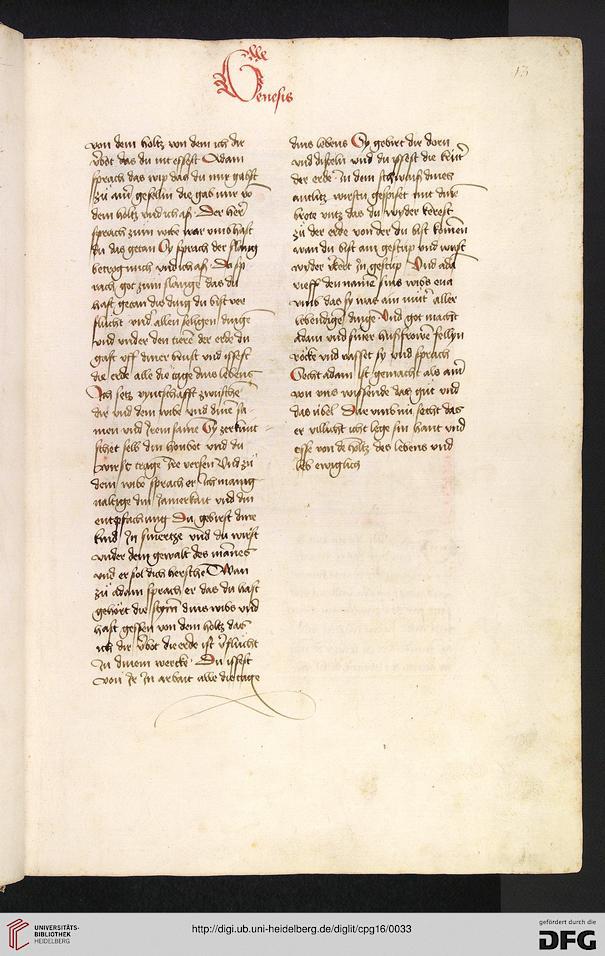 13
Genesis
von dem holtz von dem ich dir
v̄bot das du nit essest Adam
sprach das wip das du mir gabst
zu ainr gesellin die gab mir vō
dem holtz vnd ich aß Der her
sprach zum wibe war vmb hast
du das getan Sy sprach der slang
betrog mich vnd ich aß Do sp
rach got zum slange das du
hast getan die ding du bist ver
flucht vnd allen seligen dingē
vnd vnder den tierē der erde du
gast vff diner brust vnd issest
die erde alle die tage dins lebens
Ich setz vyntschafft zwusche
dir vnd dem wibe vnd dinē sa
men vnd Irem same Sy zerknut
schet selb din houbot vnd du
wirst trage Ire versen Vnd zu
dem wibe sprach er Ich manig
ualtige din Jamerkait vnd din
entpfachung Du gebirst dine
kind In smertze vnd du wirst
vnder dem gewalt des mānes
vnd er sol dich hersche Wan
zu adam sprach er das du hast
gehört die stym dins wibs vnd
hast gessen von dem holtz das
ich dir v̄bot die erde ist v̄flucht
In dinem wercke Du issest
von Ir In arbait alle die tage
dins lebens Sy gebirt dir dorn
vnd disteln vnd du issest die krut
der erde In dem schwaiß dines
antlitz wirstu gespiset mit dinē
brote vntz das du wyder kerest
zu der erde von der du bist komen
wan du bist ain gestup vnd wirst
wyder kert In gestup Vnd ada
rieff den namē sins wibs eua
vmb das sy was ain mut aller
lebendige dinge Vnd got macht
adam vnd siner husfrowē fellyn
röcke vnd vasset sy vnd sprach
Secht adam ist gemacht als ain
von vns wissende das gut vnd
das übel Dar vmb nu secht das
er villicht icht lege sin hant vnd
esse von dē holtz des lebens vnd
leb ewiglich
UNIVERSITÄTS-
BIBLIOTHEK
HEIDELBERG
http://digi.ub.uni-heidelberg.de/diglit/cpg16/0033
gefördert durch die
DFG